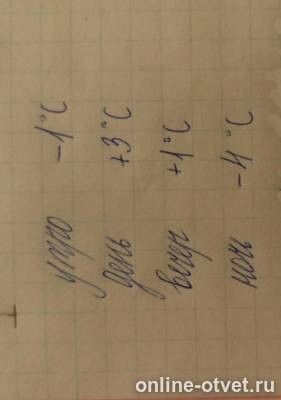 утро -1°C
день +3°C
вечер +1°C
ночь -4°C
online-otvet.ru